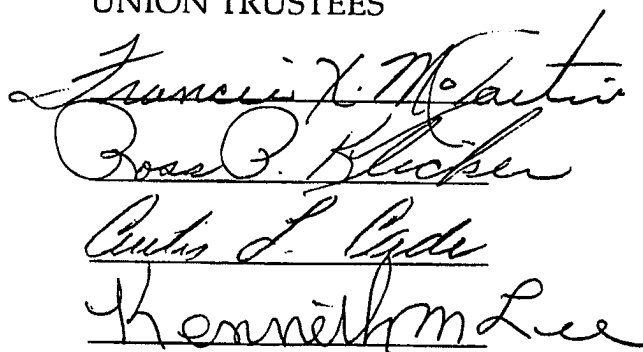 UNION TRUSTEES
Francis X. McCartin
Ross P. Klicker
Curtis L. Cade
Kenneth M Lee